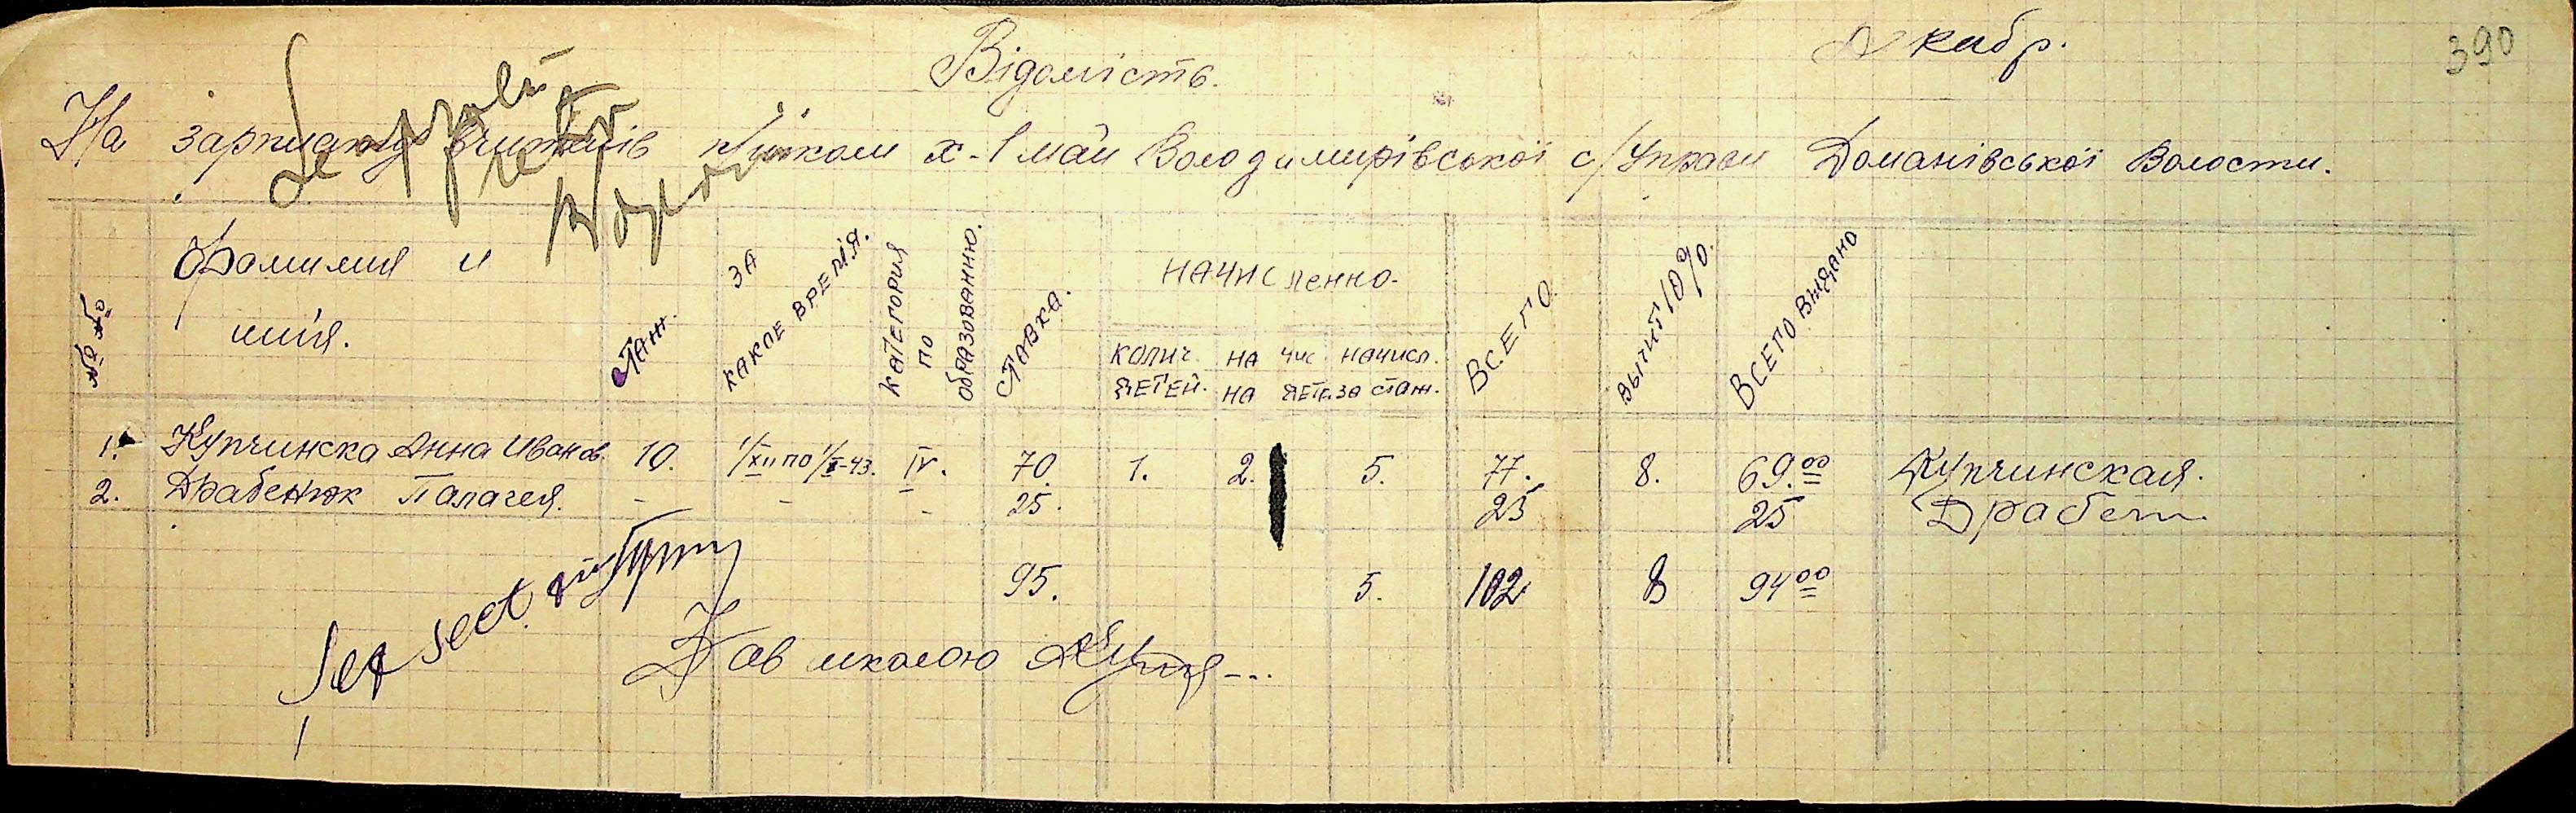 390
Декабр.
Відомість.
На зарплату вчителів п/школи х-1 май Володимирівської с/Управи Доманівської Волости.
Se aprobă
Фамилия и имя.
Стаж.
ЗА КАКОЕ ВРЕМЯ.
КАТЕГОРИЯ ПО ОБРАЗОВАНИЮ.
СТАВКА.
НАЧИСленно.
КОЛИЧ. ДЕТЕЙ.
НА
НА
чис
ДЕТЕ.
начисл. за стаж.
ВСЕГО.
ВЫЧИТ 10%.
ВСЕГО ВЫДАНО
1. Купчинска Анна Иванов. 10. 1/XII по 1/I-43. IV. 70. 1. 2. 5. 77. 8. 69.00 Купчинская.
2. Драбенюк Палагея. - - - 25. 25 25 Драбен
95. 5. 102 8 94 00
Șef sect.
Зав школою